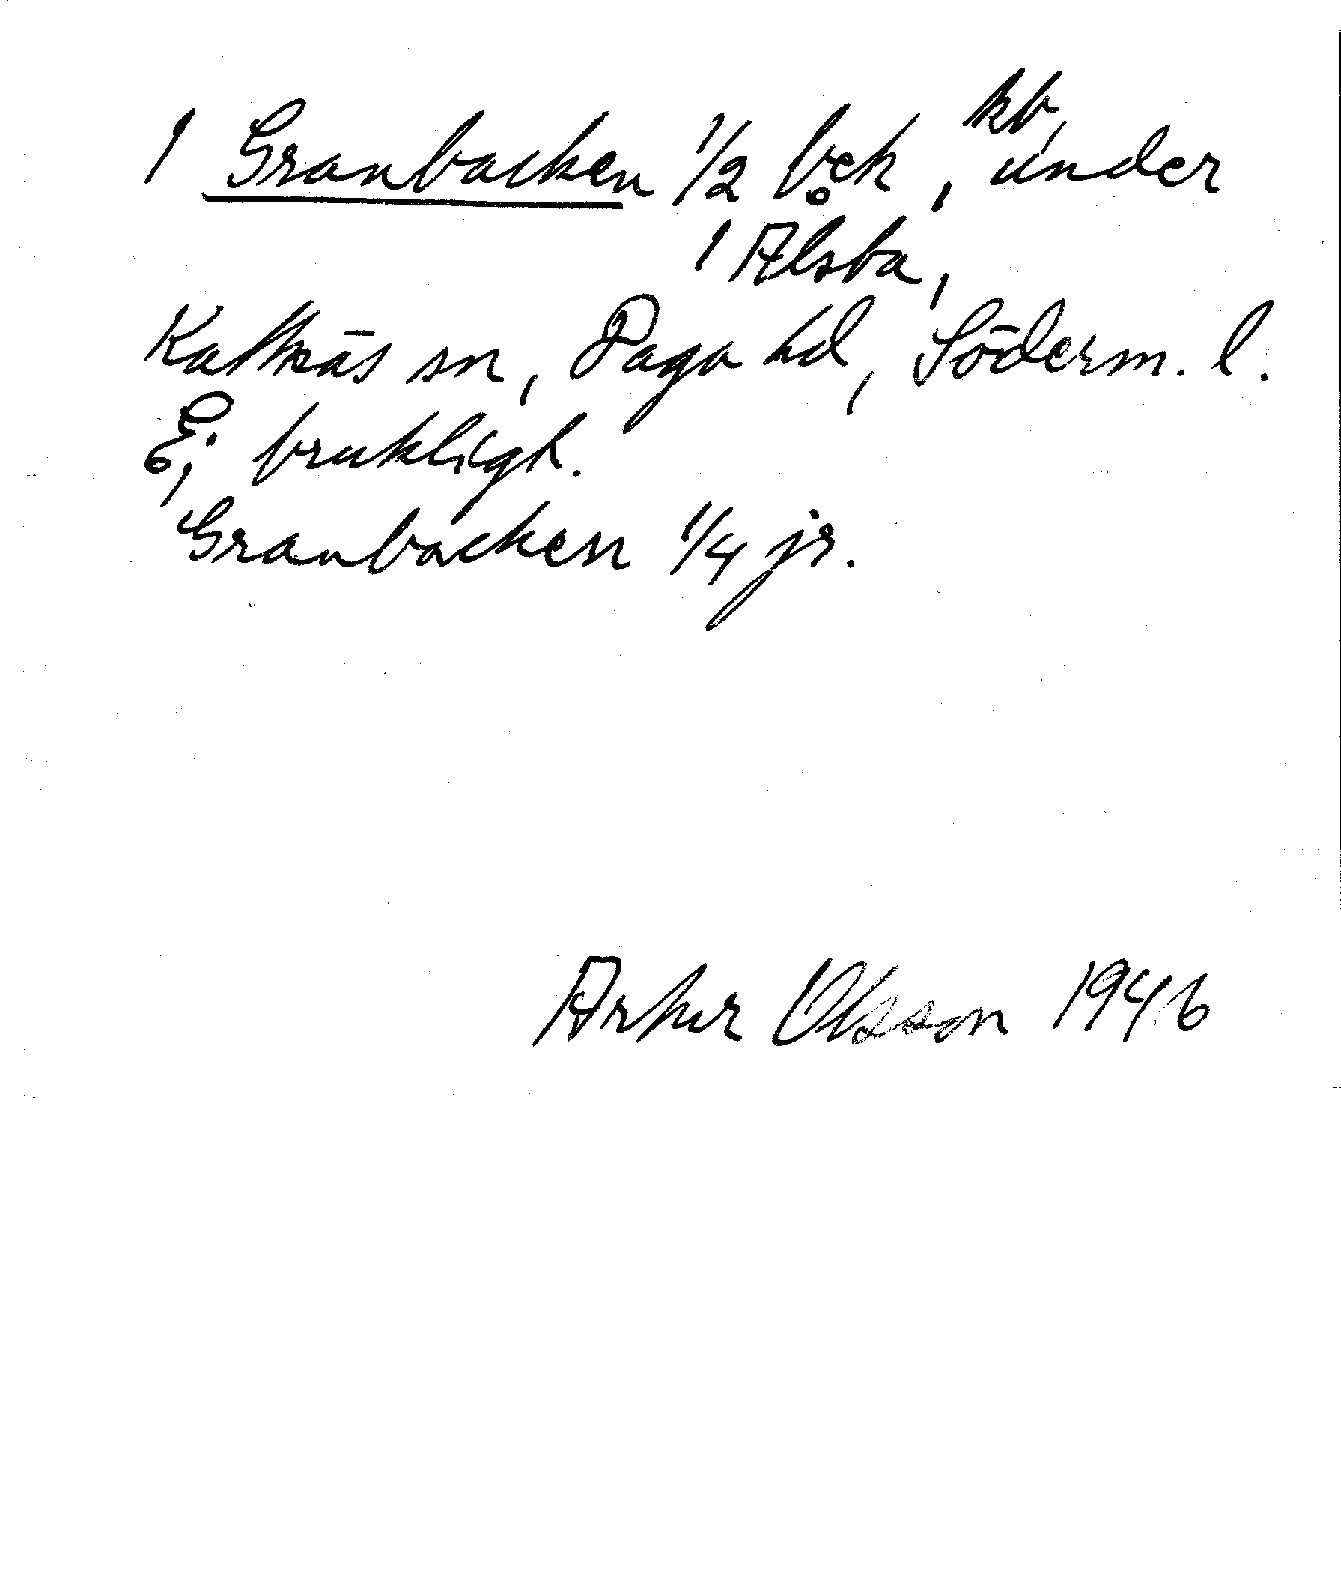 1 Granbacken 1/2 bek, kb, under
1 Alsta,
Kattnäs sn, Daga hd, Söderm. l.
Ej brukligh.
Granbacken 1/4 jr.
Arthur Olsson 1946